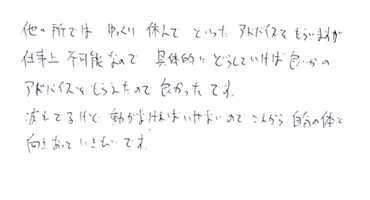 他の所では ゆっくり 休んで、といった アドバイスを もらいますが
仕事上 不可能なので、具体的に どうしていけば 良いかの
アドバイスを もらえたので 良かったです。
疲れてるけど 動かなければいけないので これから 自分の体と
向きあって いきたいです。